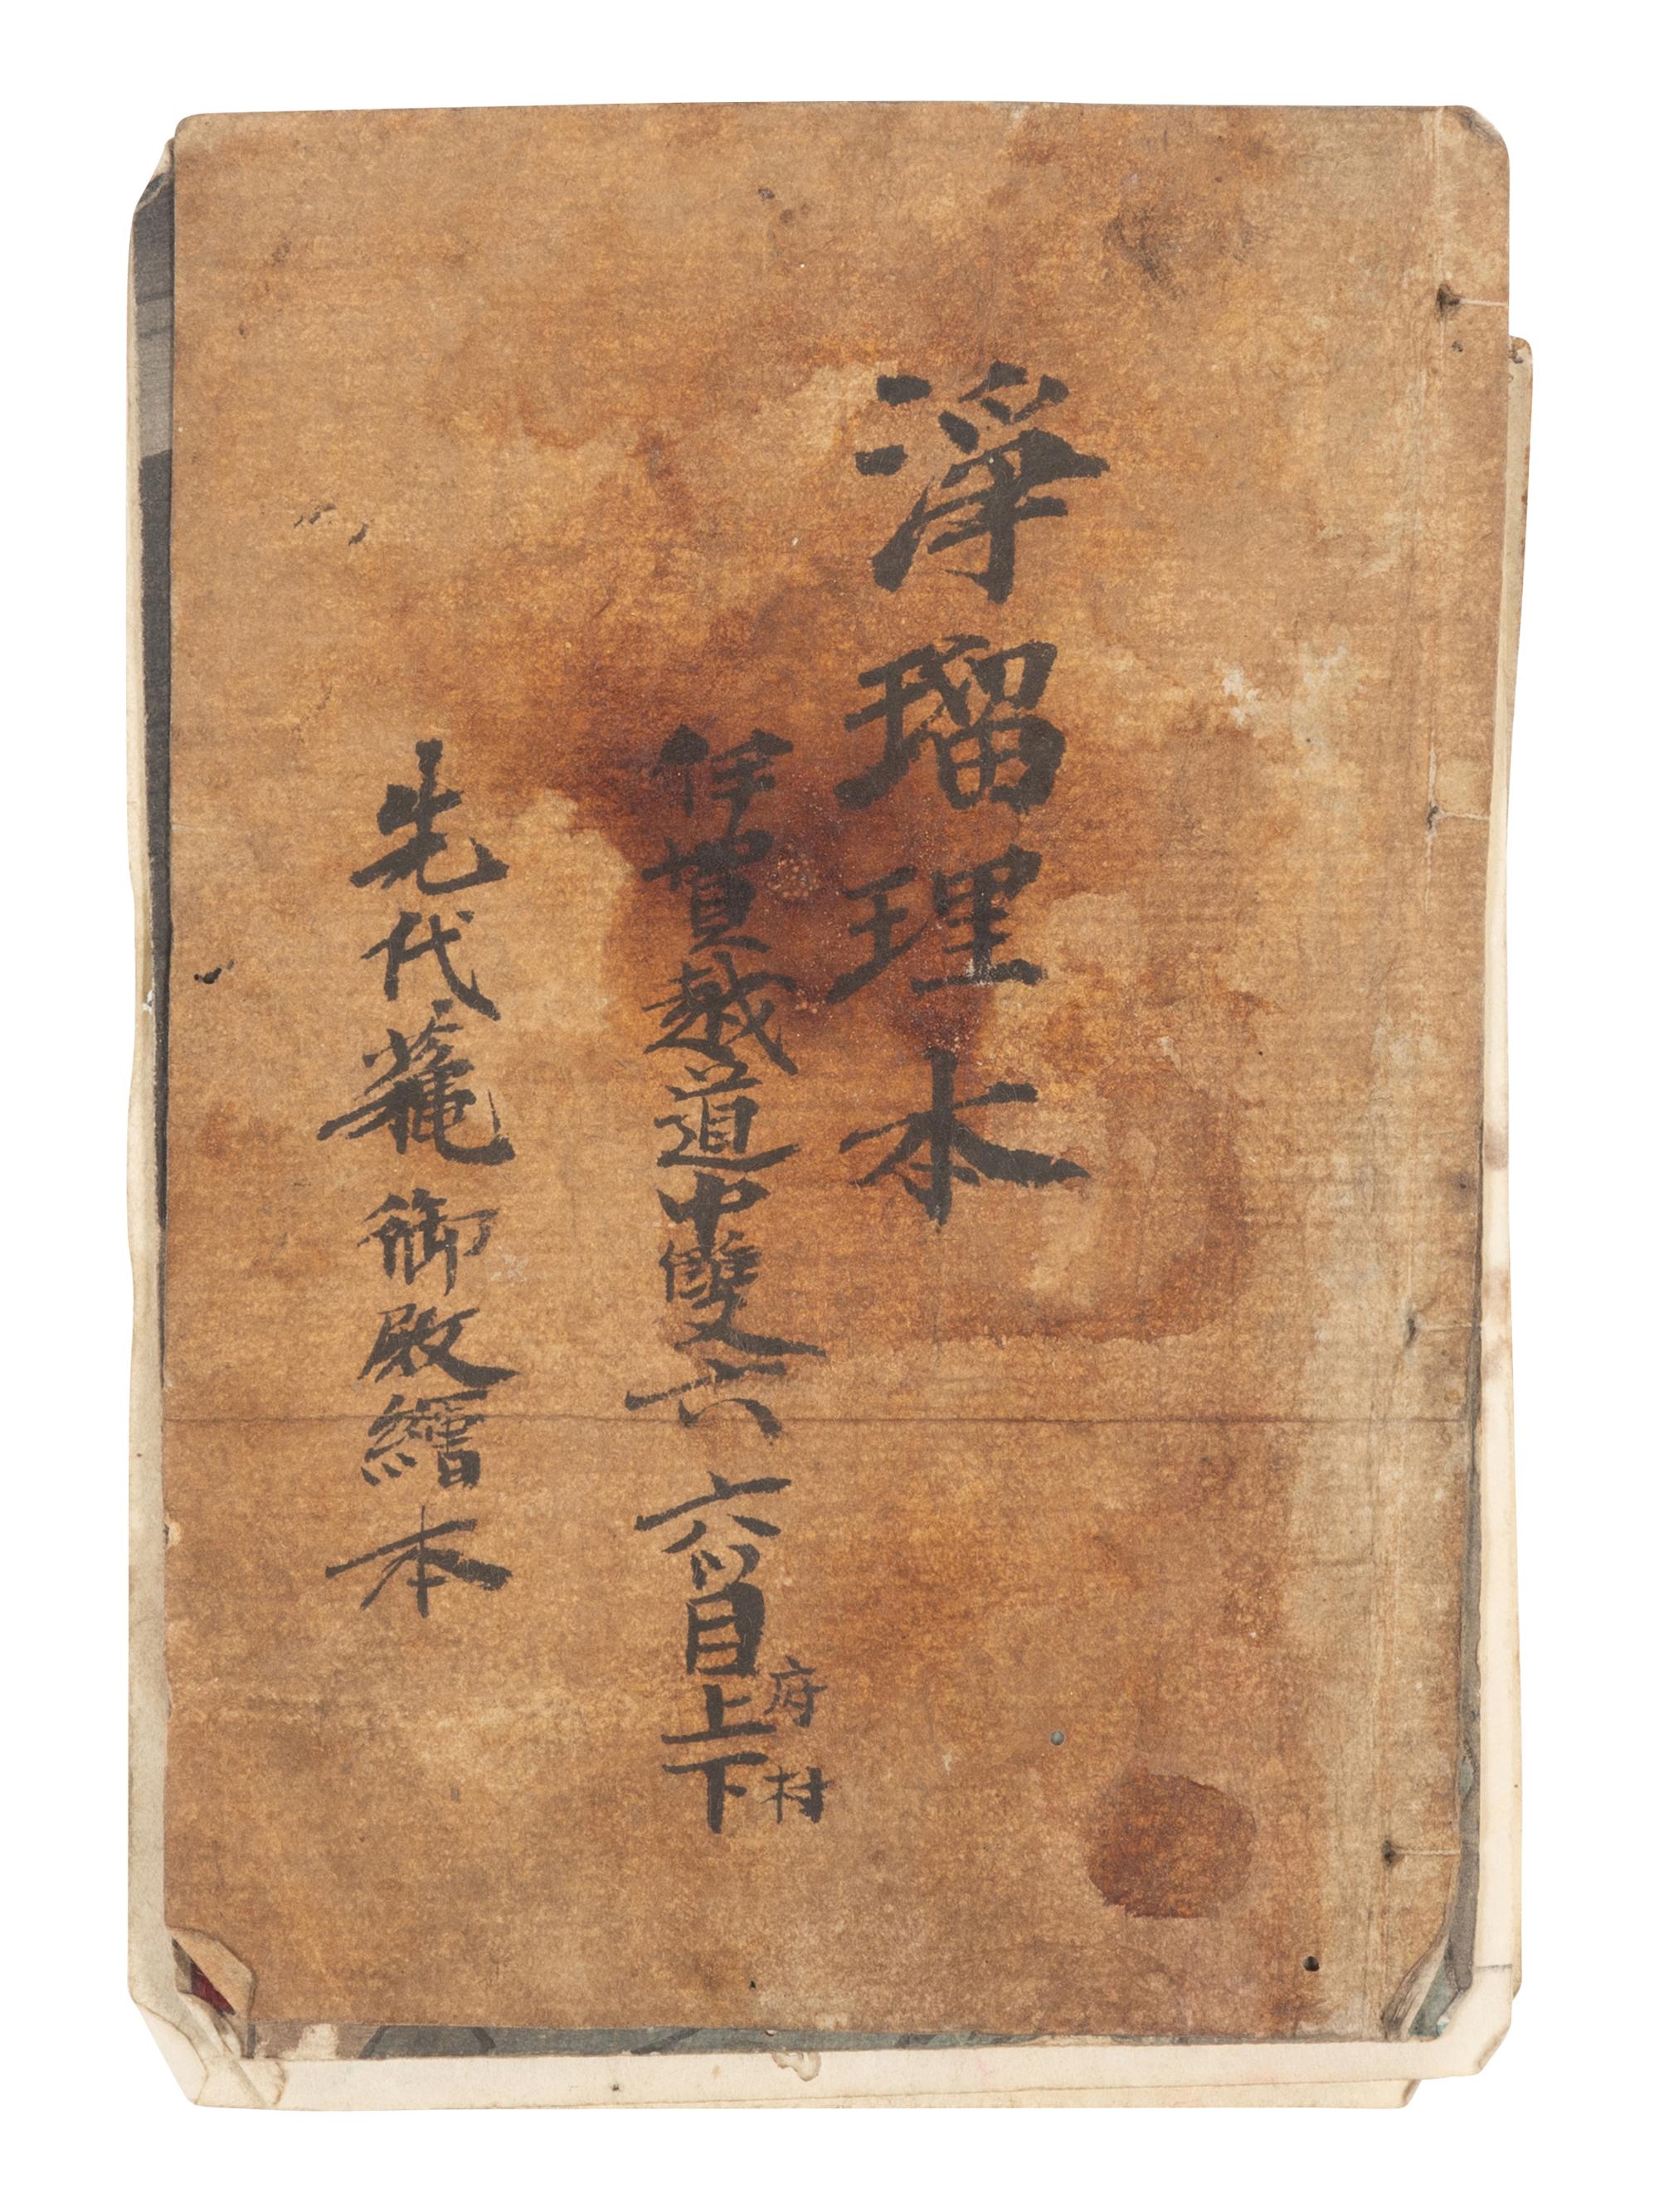 淨瑠理本
伊賀越道中雙六 六ツ目上下
府村
先代蘒御殿繪本